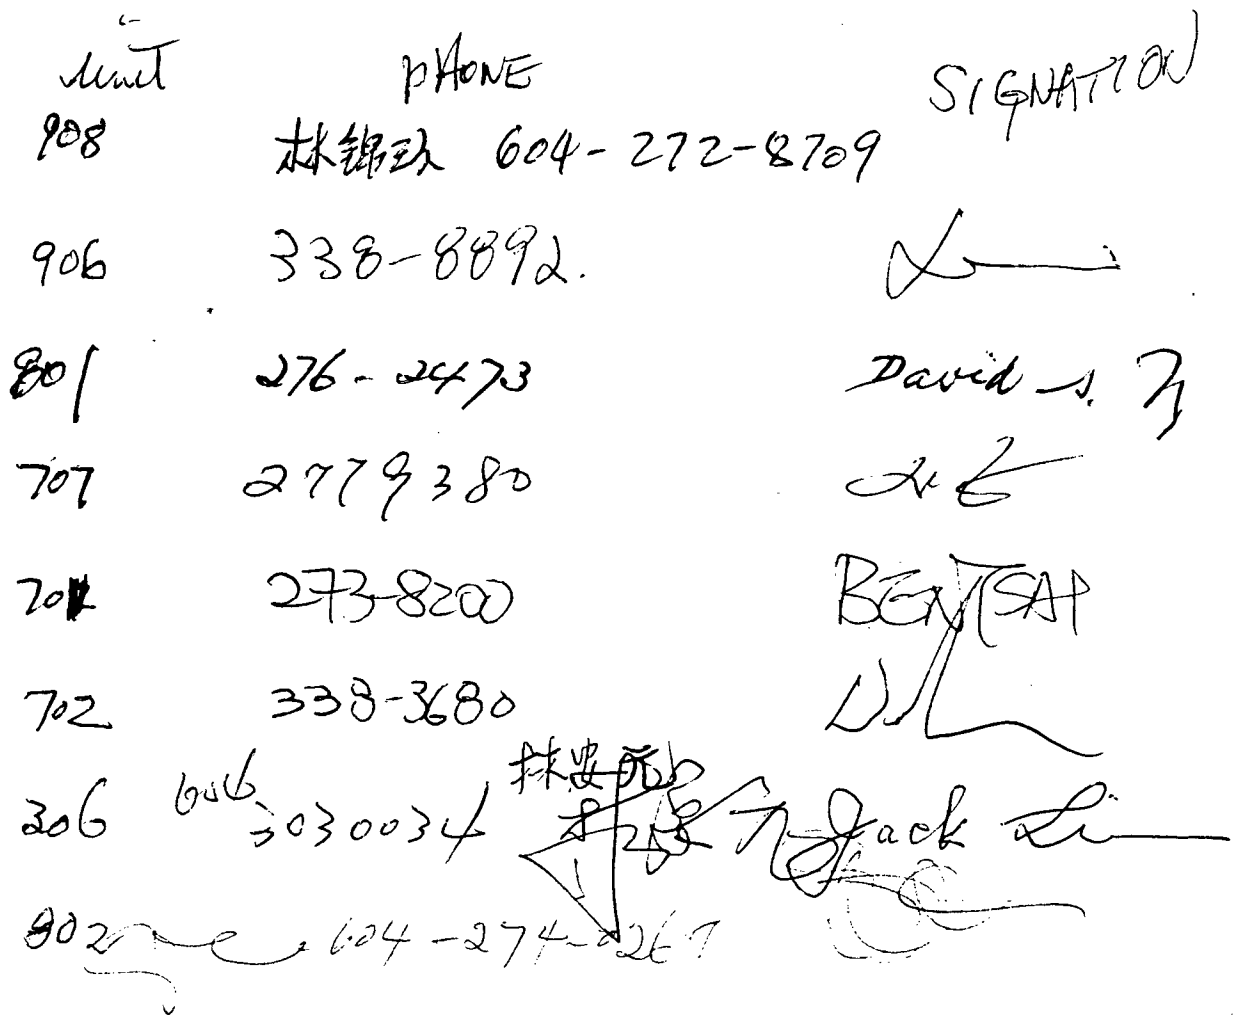 Unit PHONE SIGNATION
908 林錦玖 604-272-8709
906 338-8892.
801 276-2473 David S.
707 2779380
701 273-8200 BEN TSAI
702 338-3680
林安
306 604 3030034 Jack Li
802 604-274-0267